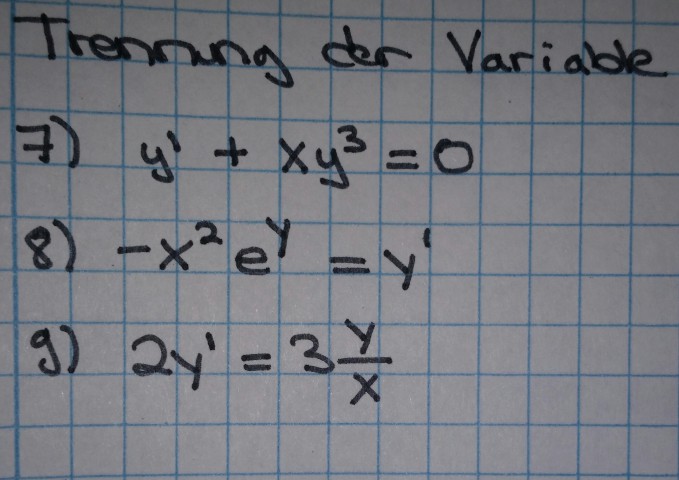 Trennung der Variable
7) y' + xy³ = 0
8) -x² e^y = y'
9) 2y' = 3 y/x